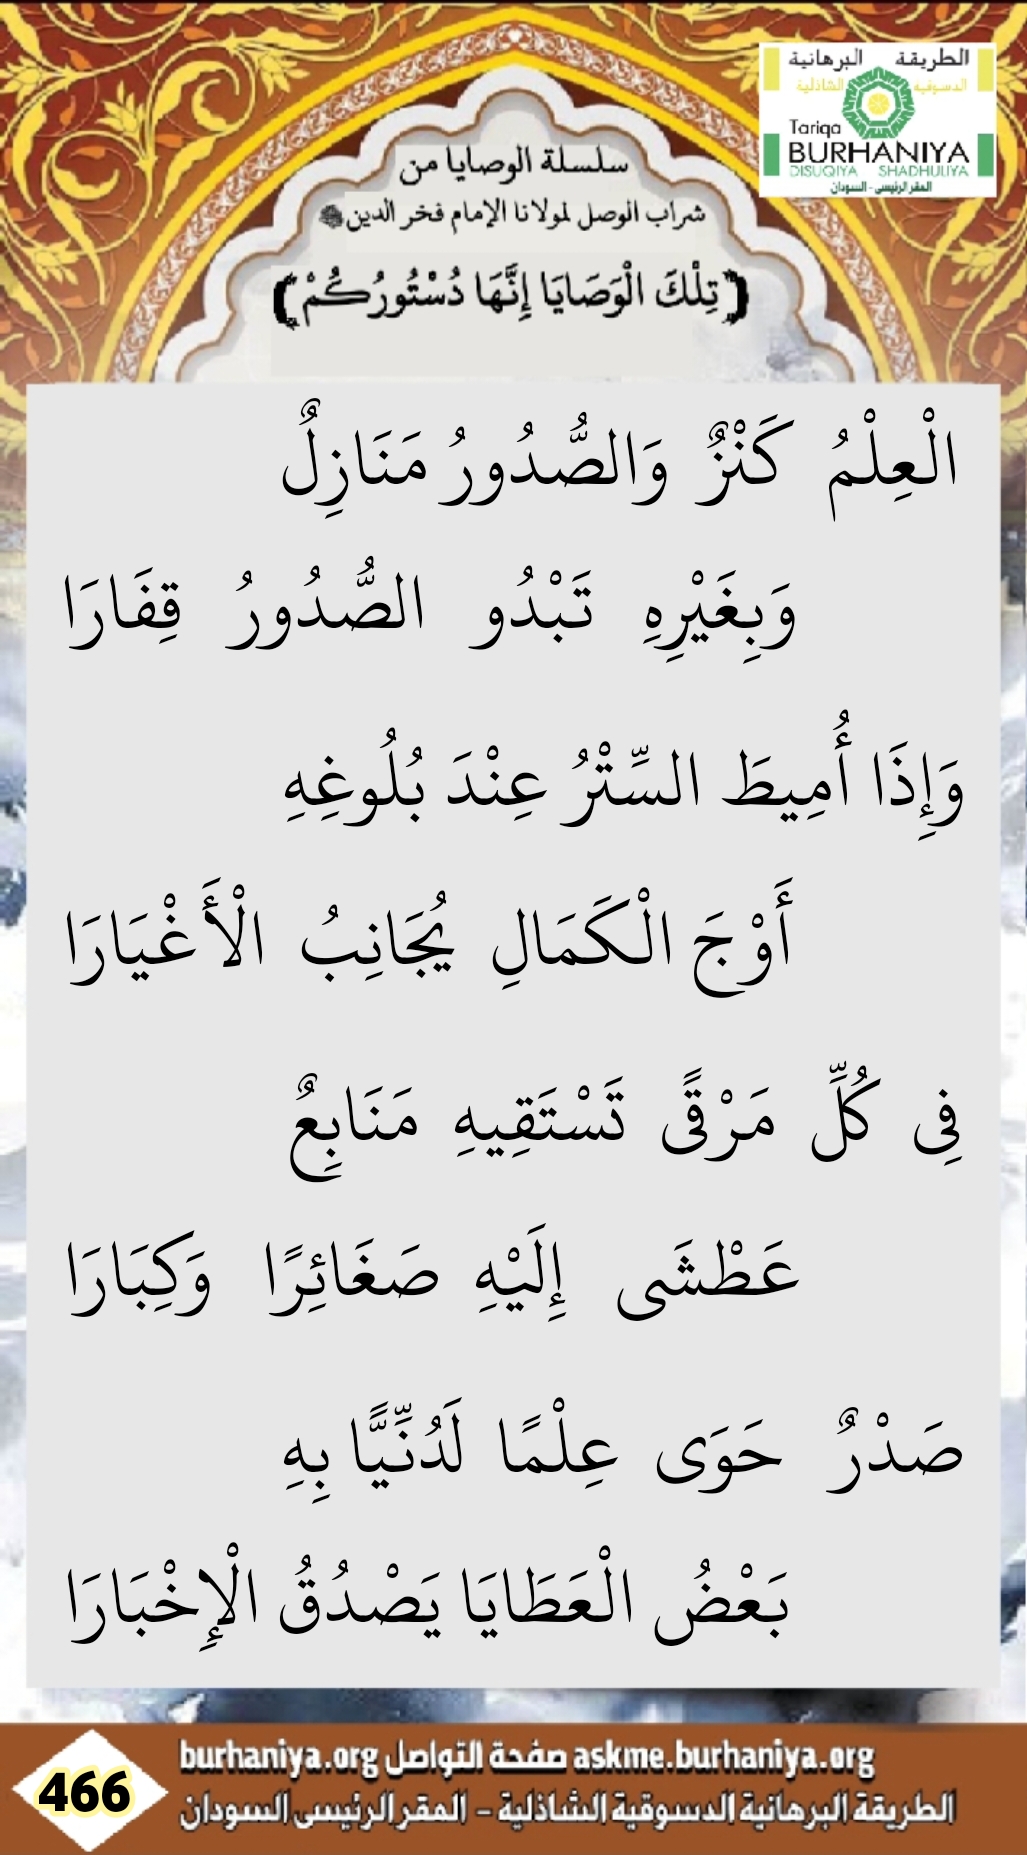 الطريقة البرهانية
الدسوقية الشاذلية
Tariqa
BURHANIYA
DISUQIYA SHADHULIYA
المقر الرئيسى - السودان
سلسلة الوصايا من
شراب الوصل لمولانا الإمام فخر الدين
﴿تِلْكَ الْوَصَايَا إِنَّهَا دُسْتُورُكُمْ﴾
الْعِلْمُ كَنْزٌ وَالصُّدُورُ مَنَازِلٌ
وَبِغَيْرِهِ تَبْدُو الصُّدُورُ قِفَارَا
وَإِذَا أُمِيطَ السِّتْرُ عِنْدَ بُلُوغِهِ
أَوْجَ الْكَمَالِ يُجَانِبُ الْأَغْيَارَا
فِى كُلِّ مَرْقًى تَسْتَقِيهِ مَنَابِعٌ
عَطْشَى إِلَيْهِ صَغَائِرًا وَكِبَارَا
صَدْرٌ حَوَى عِلْمًا لَدُنِّيًّا بِهِ
بَعْضُ الْعَطَايَا يَصْدُقُ الْإِخْبَارَا
burhaniya.org صفحة التواصل askme.burhaniya.org
الطريقة البرهانية الدسوقية الشاذلية - المقر الرئيسى السودان
466